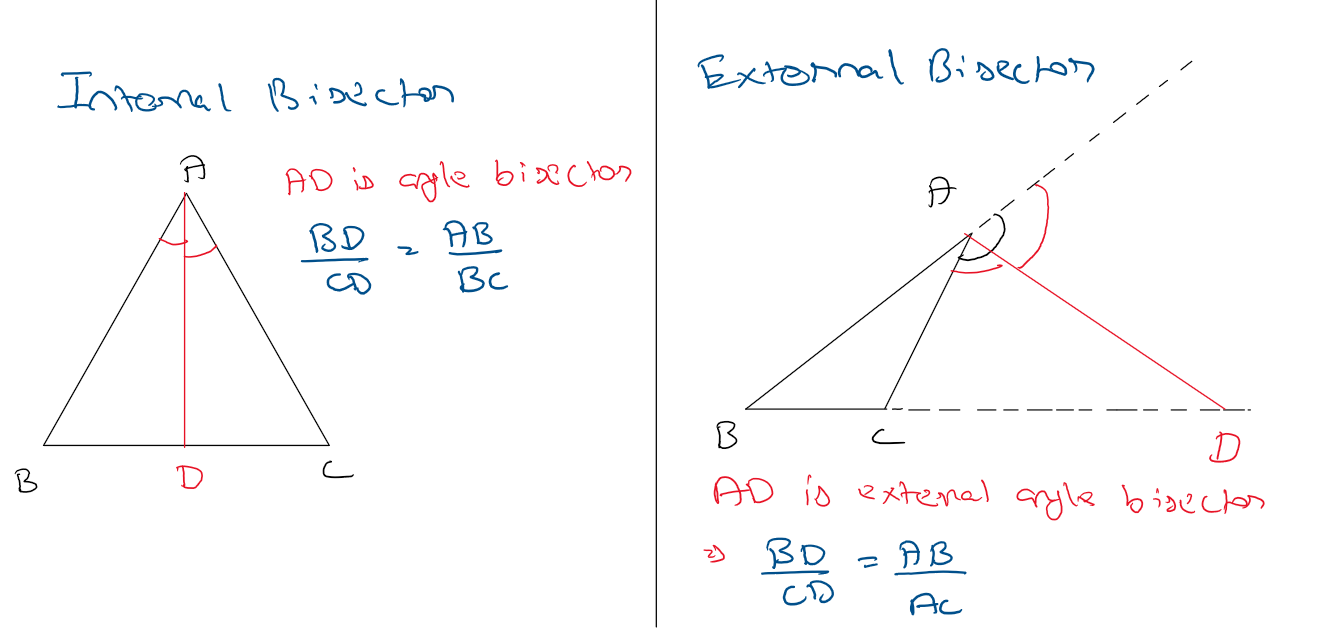 Internal Bisector
A
AD is angle bisector
BD/CD = AB/BC
B
D
C
External Bisector
A
B
C
D
AD is external angle bisector
⇒ BD/CD = AB/AC